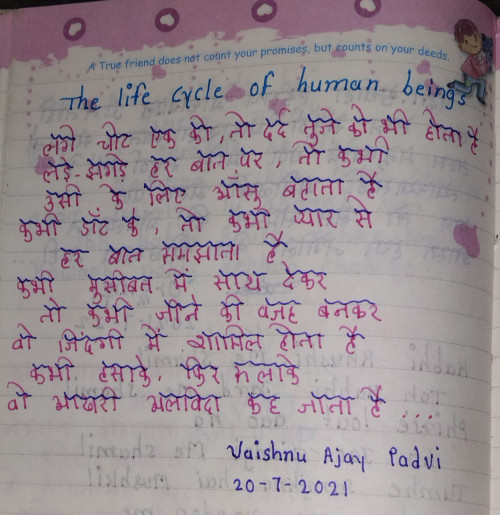 A True friend does not count your promises, but counts on your deeds.
The life cycle of human beings
लगे चोट एक को, तो दर्द दुजे को भी होता है
लड़े-झगड़े हर बात पर, तो कभी
उसी के लिए आँसु बहाता है
कभी डाँट के, तो कभी प्यार से
हर बात समझाता है
कभी मुसीबत में साथ देकर
तो कभी जीने की वजह बनकर
वो जिंदगी में शामिल होता है
कभी, हसाके, फिर रुलाके
वो आखरी अलविदा कह जाता है...
Vaishnu Ajay Padvi
20-7-2021